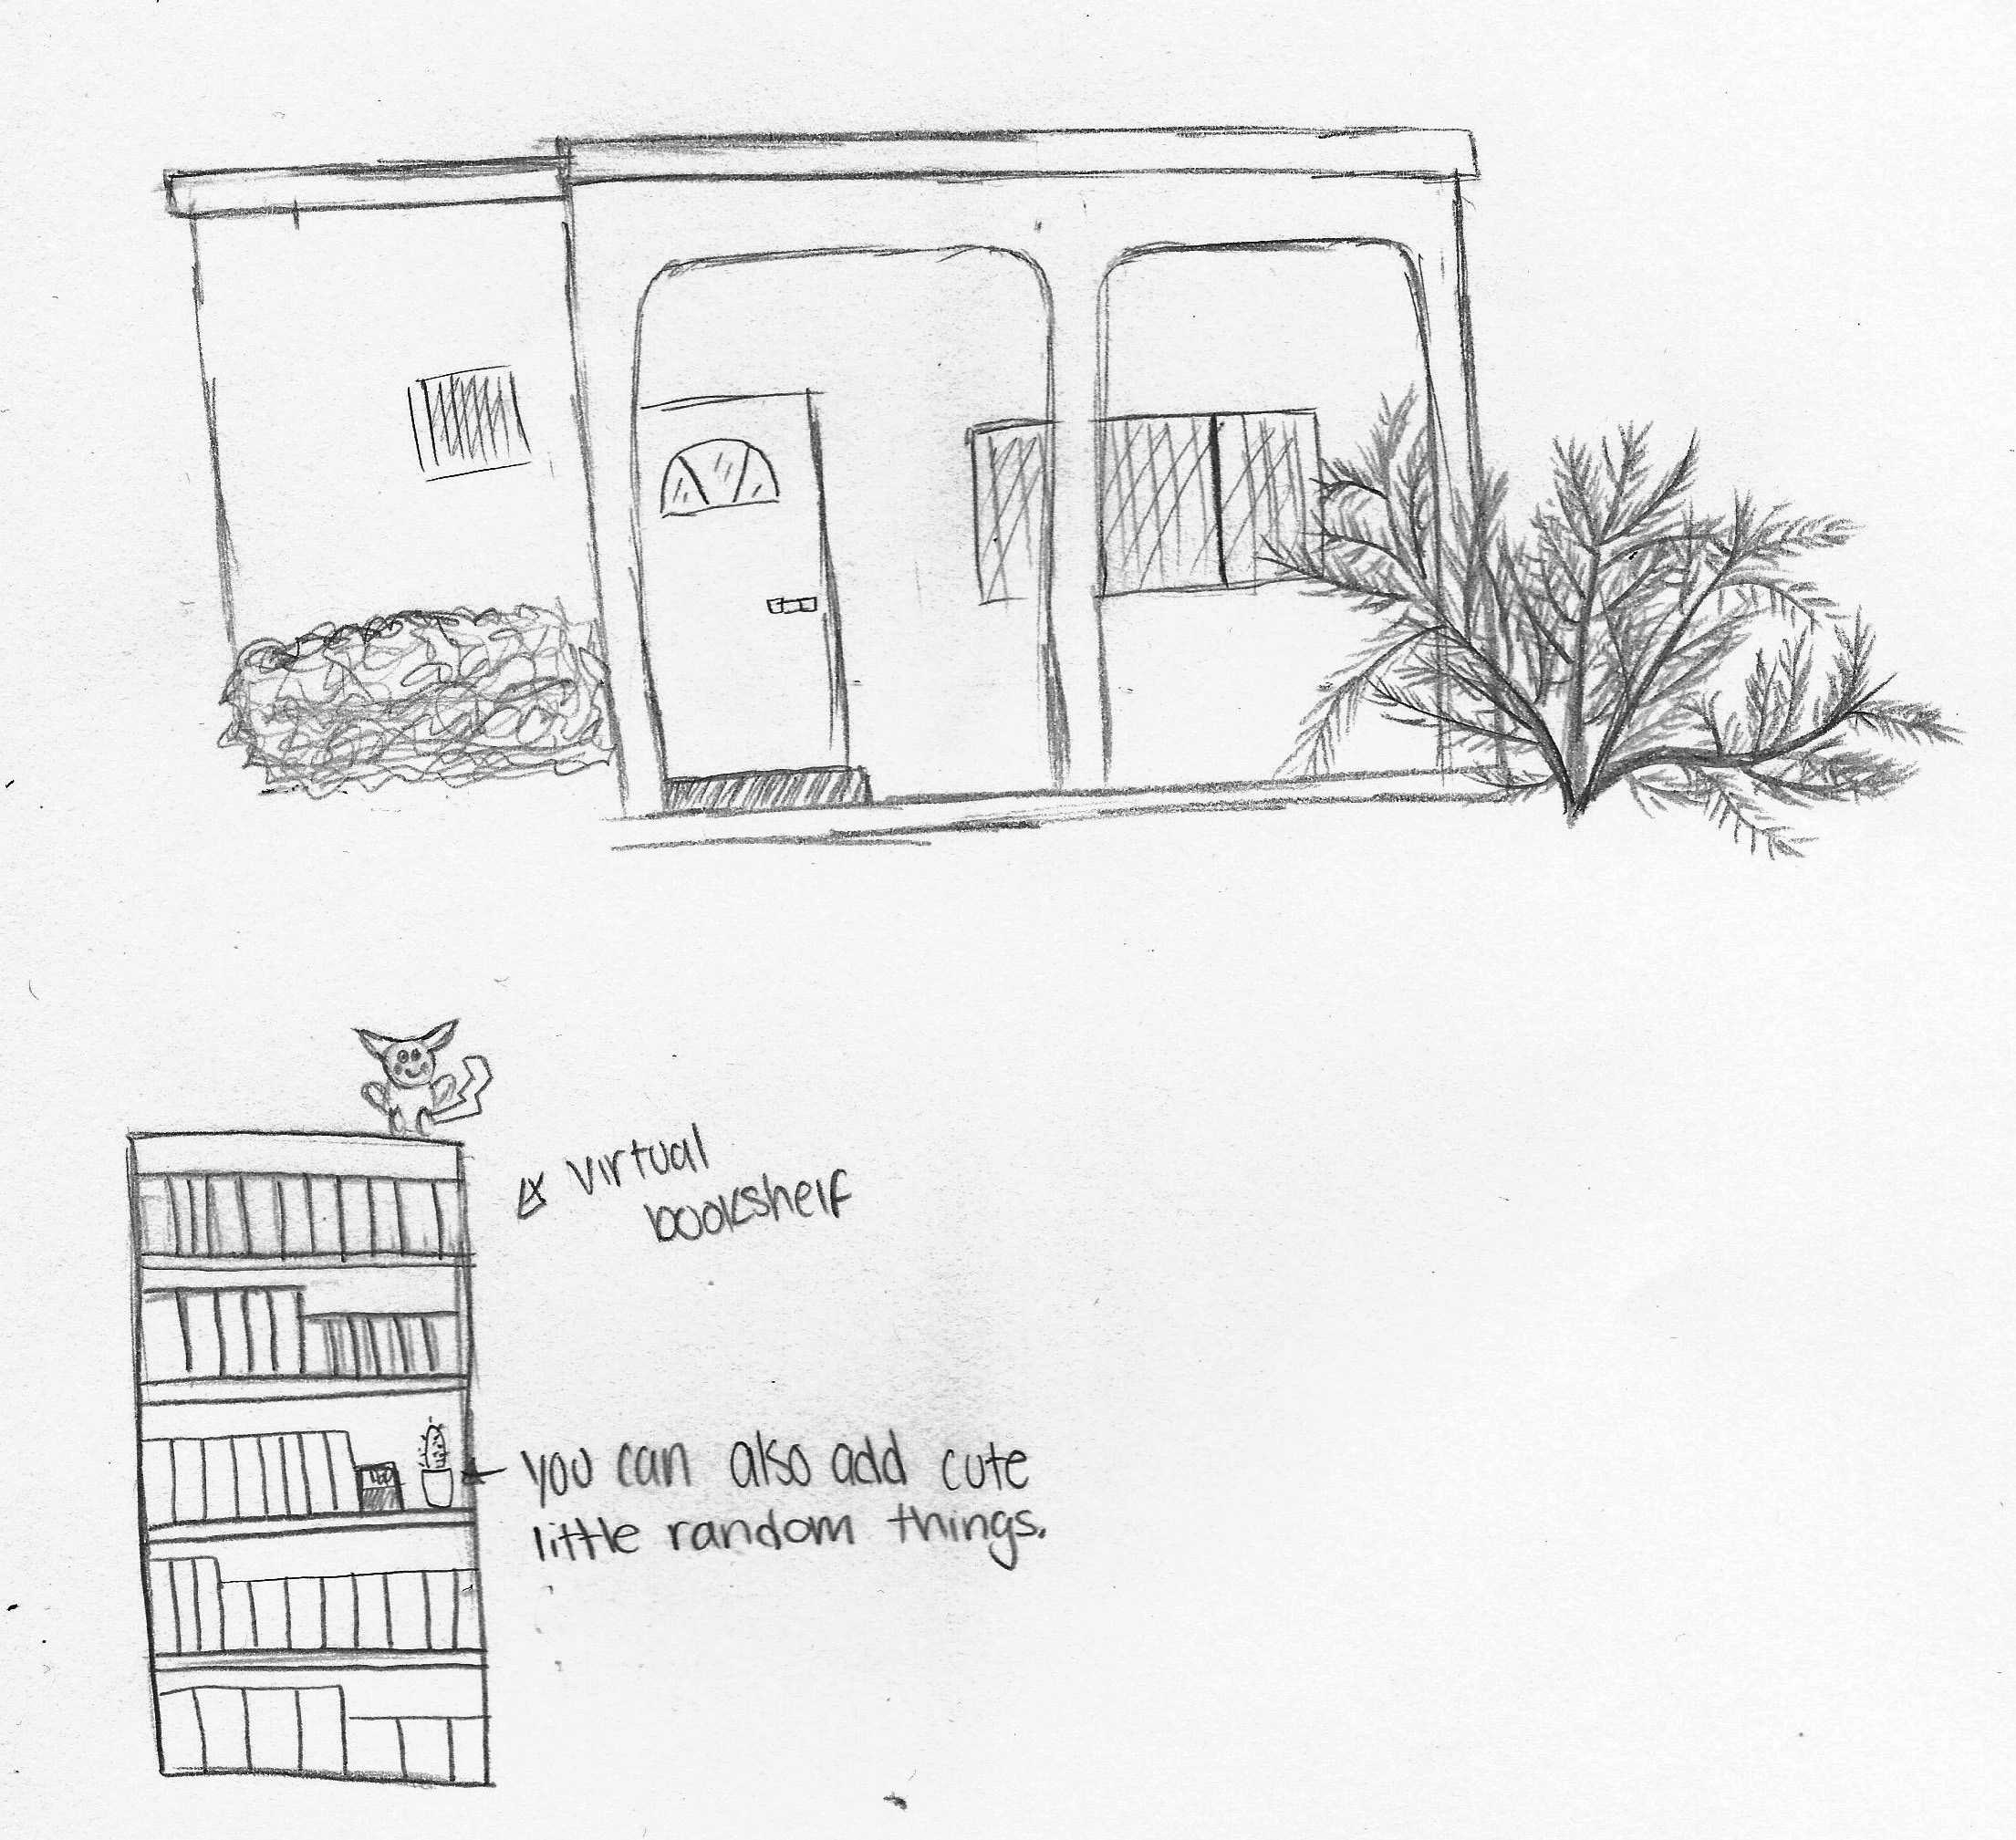 virtual
bookshelf
you can also add cute
little random things.